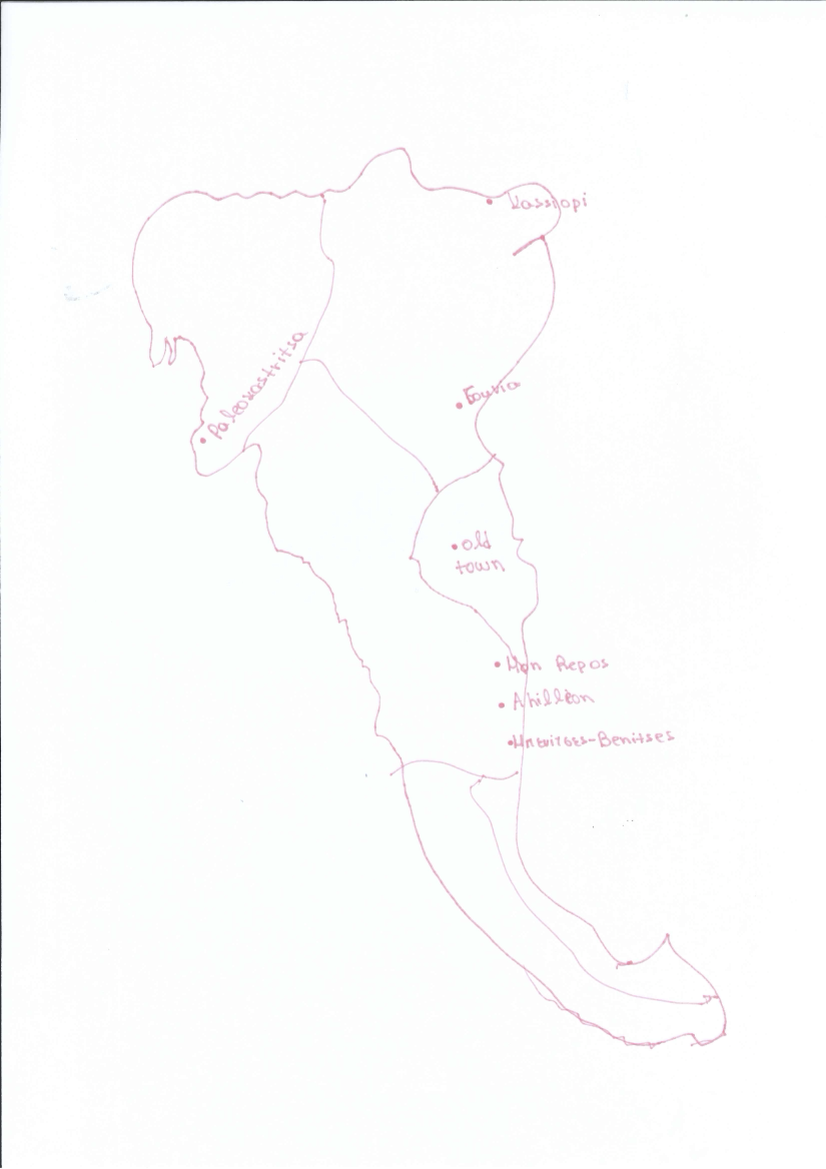 Kassiopi
Paleokastritsa
Γουνια
old
town
Mon Repos
Ahilleon
Μπενιτσες-Benitses